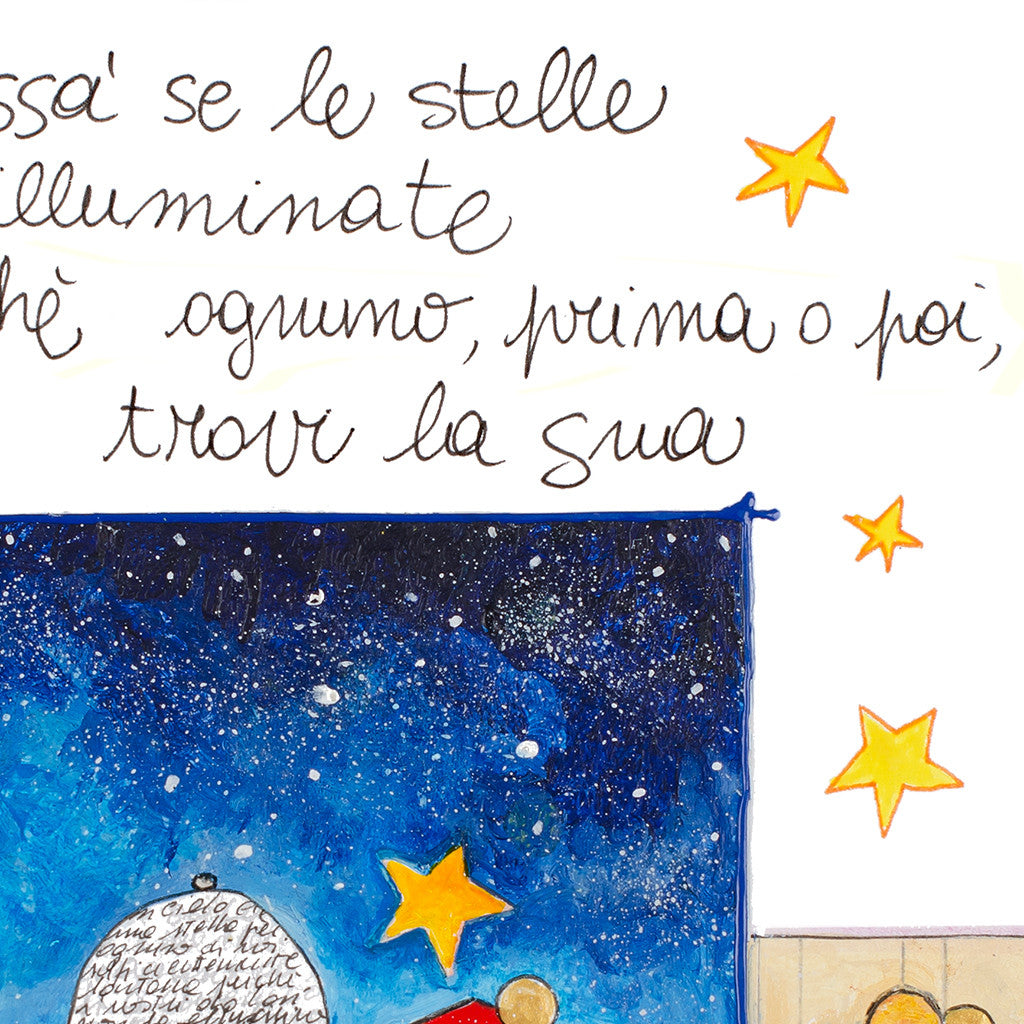 ssa' se le stelle
illuminate
hè ognuno, prima o poi,
trovi la sua
in cielo c'è
una stella per
ognuno di noi